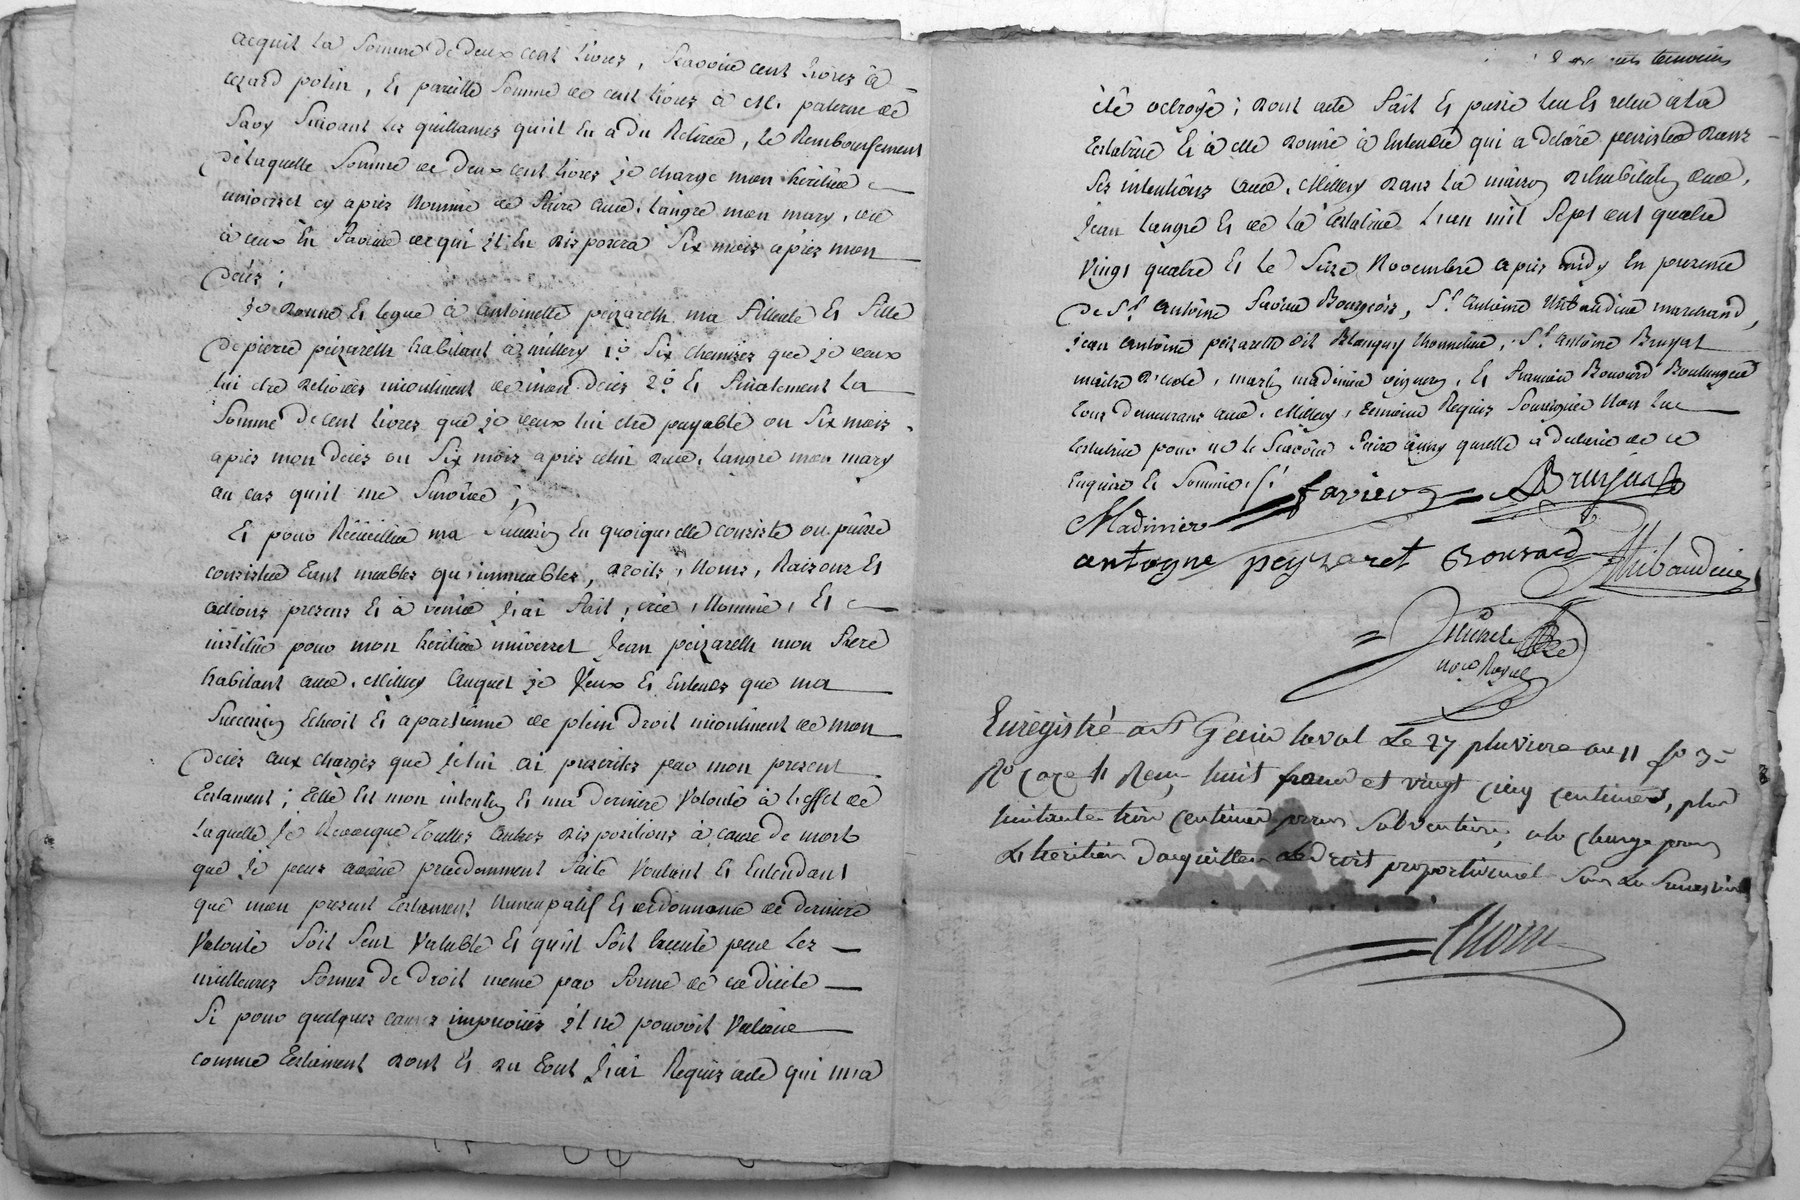 acquit la Somme de deux cent livres, Scavoir cent livres à
cezard polin, Et pareille Somme de cent livres à Me. paterne de
Savy Suivant les quittances qu'il En a du Retirer, le Remboursement
de laquelle Somme de deux cent livres je charge mon héritier
universel cy après Nommé de faire aud. Langre mon mary, ou
à ceux En faveur de qui il En disposera Six mois après mon
décés;
Je donne Et legue à antoinette peizareth ma filleule Et fille
de pierre peizareth habitant à millery 1°. Six chemises que je veux
lui etre delivrées incontinent de mon décés 2°. Et finalement la
Somme de cent livres que je veux lui etre payable ou Six mois
après mon décés ou Six mois après celui dud. Langre mon mary
au cas qu'il me Survive;
Et pour Recueillir ma Succession En quoi qu'elle consiste ou puisse
consister tant meubles qu'immeubles, droits, Noms, Raisons Et
actions presens Et à venir J'ai fait, créé, Nommé, Et
institué pour mon héritier universel Jean peizareth mon frere
habitant aud. Millery auquel je Veux Et Entends que ma
Succession Echeoit Et apartienne de plein droit incontinent de mon
décés aux charges que je lui ai prescrites par mon present
Testament; Telle Est mon intention Et ma derniere Volonté à l'effet de
laquelle Je Revoque Toutes autres dispositions à cause de mort
que Je peux avoir precedemment faite Voulant Et Entendant
que mon present Testament Nuncupatif Et ordonnance de derniere
Volonté Soit Seul Valable Et qu'il Soit Executé pour les
meilleures formes de droit meme par forme de codicile
Si pour quelques causes imprevües il ne pouvoit Valoir
comme Testament dont Et du Tout J'ai Requis acte qui m'a
temoins
été octroyé; dont acte fait Et passé leu Et releu à la
testatrice Et à elle donné à Entendre qui a déclaré persister dans
Ses intentions aud. Millery dans la maison d'habitation dud.
Jean Langre Et de la testatrice L'an mil Sept cent quatre
Vingt quatre Et le Seize Novembre après midy En presence
de Sr. Antoine favier Bourgeois, Sr. Antoine thibaudier marchand,
Jean antoine peizareth dit Blanguy thonnelier, Sr. Antoine Bruyat
maitre d'ecole, madinier vigneron, Et Bouvard Boulanger
Tous demeurans aud. Millery, temoins Requis Soussignés Non lad.
testatrice pour ne le Scavoir faire ainsy qu'elle a déclaré de ce
Enquise Et Sommée.
favier Bruyat
Madinier
antoyne peyzaret Bouvard Thibaudier
Nore. Royal
Enregistré a St Genis laval Le 27 pluviose an 11 fo 35
Ro case 11 Reçu huit francs et vingt cinq centimes, plus
huitante trois centimes pour Subvention, a la charge pour
Les heritiers d'acquitter le droit proportionnel Sur La Succession